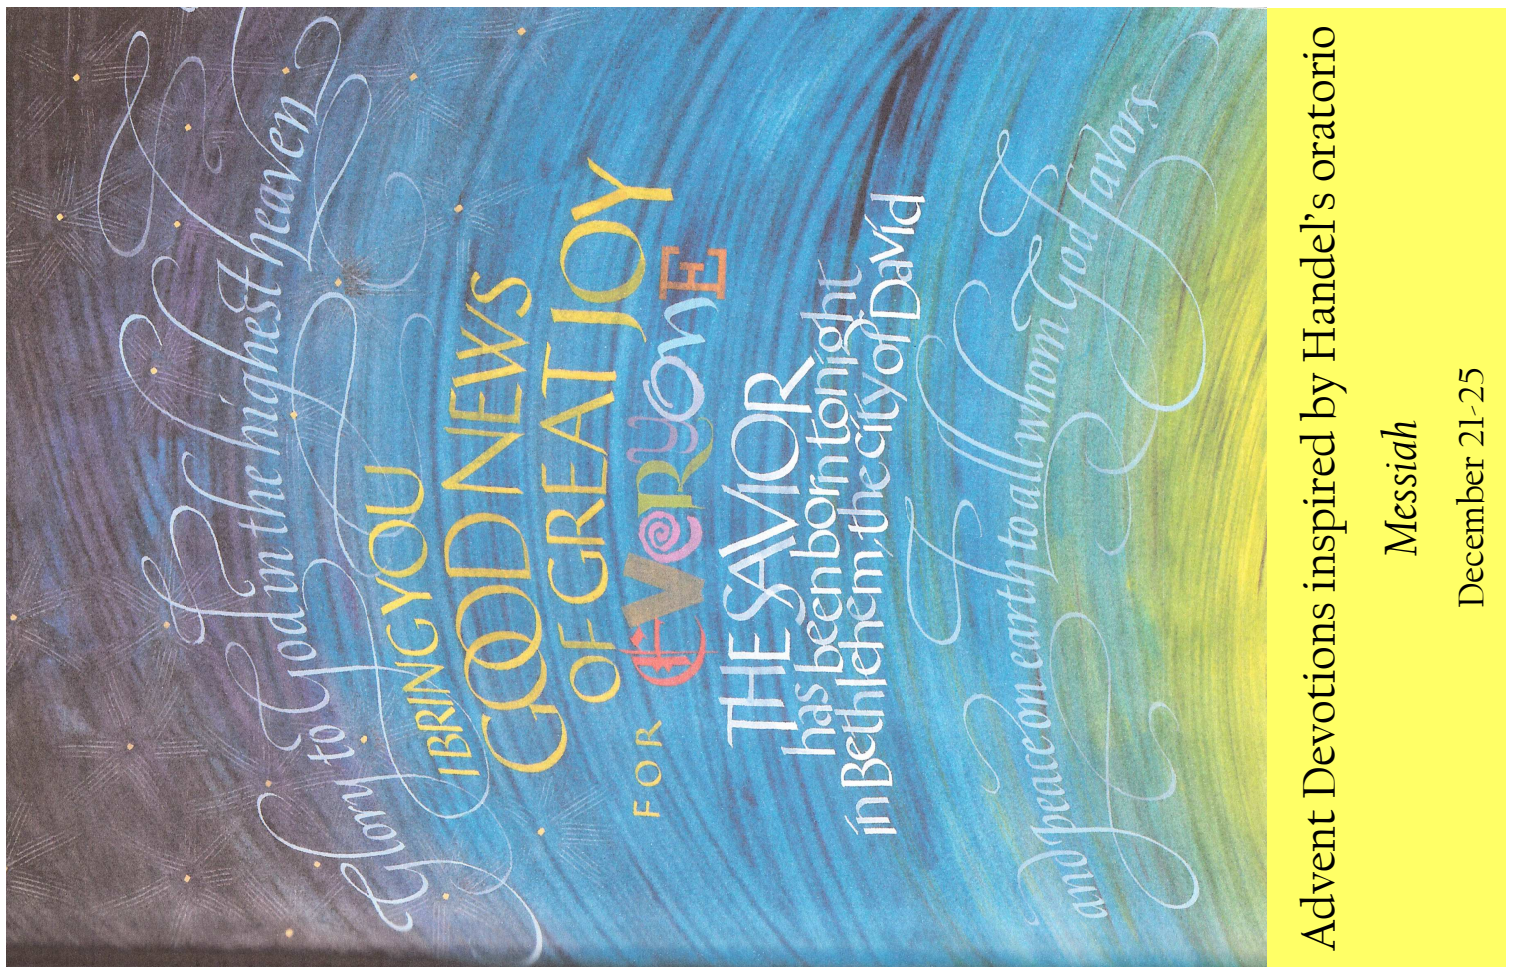 Glory to God in the highest heaven
I BRING YOU
GOOD NEWS
OF GREAT JOY
FOR EVERYONE
THE SAVIOR
has been born tonight
in Bethlehem, the city of David
and peace on earth to all whom God favors
Advent Devotions inspired by Handel's oratorio
Messiah
December 21-25